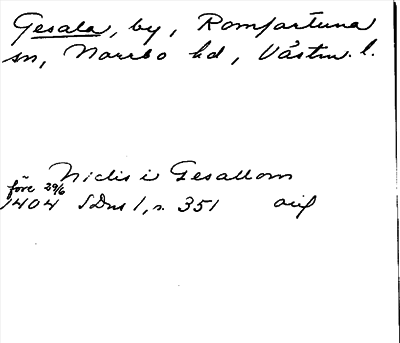 Gesala, by, Romfartuna
sn, Norrbo hd, Västm. l.
Niclis i Gesallom
före 29/6
1404 SDns 1, s. 351 orig